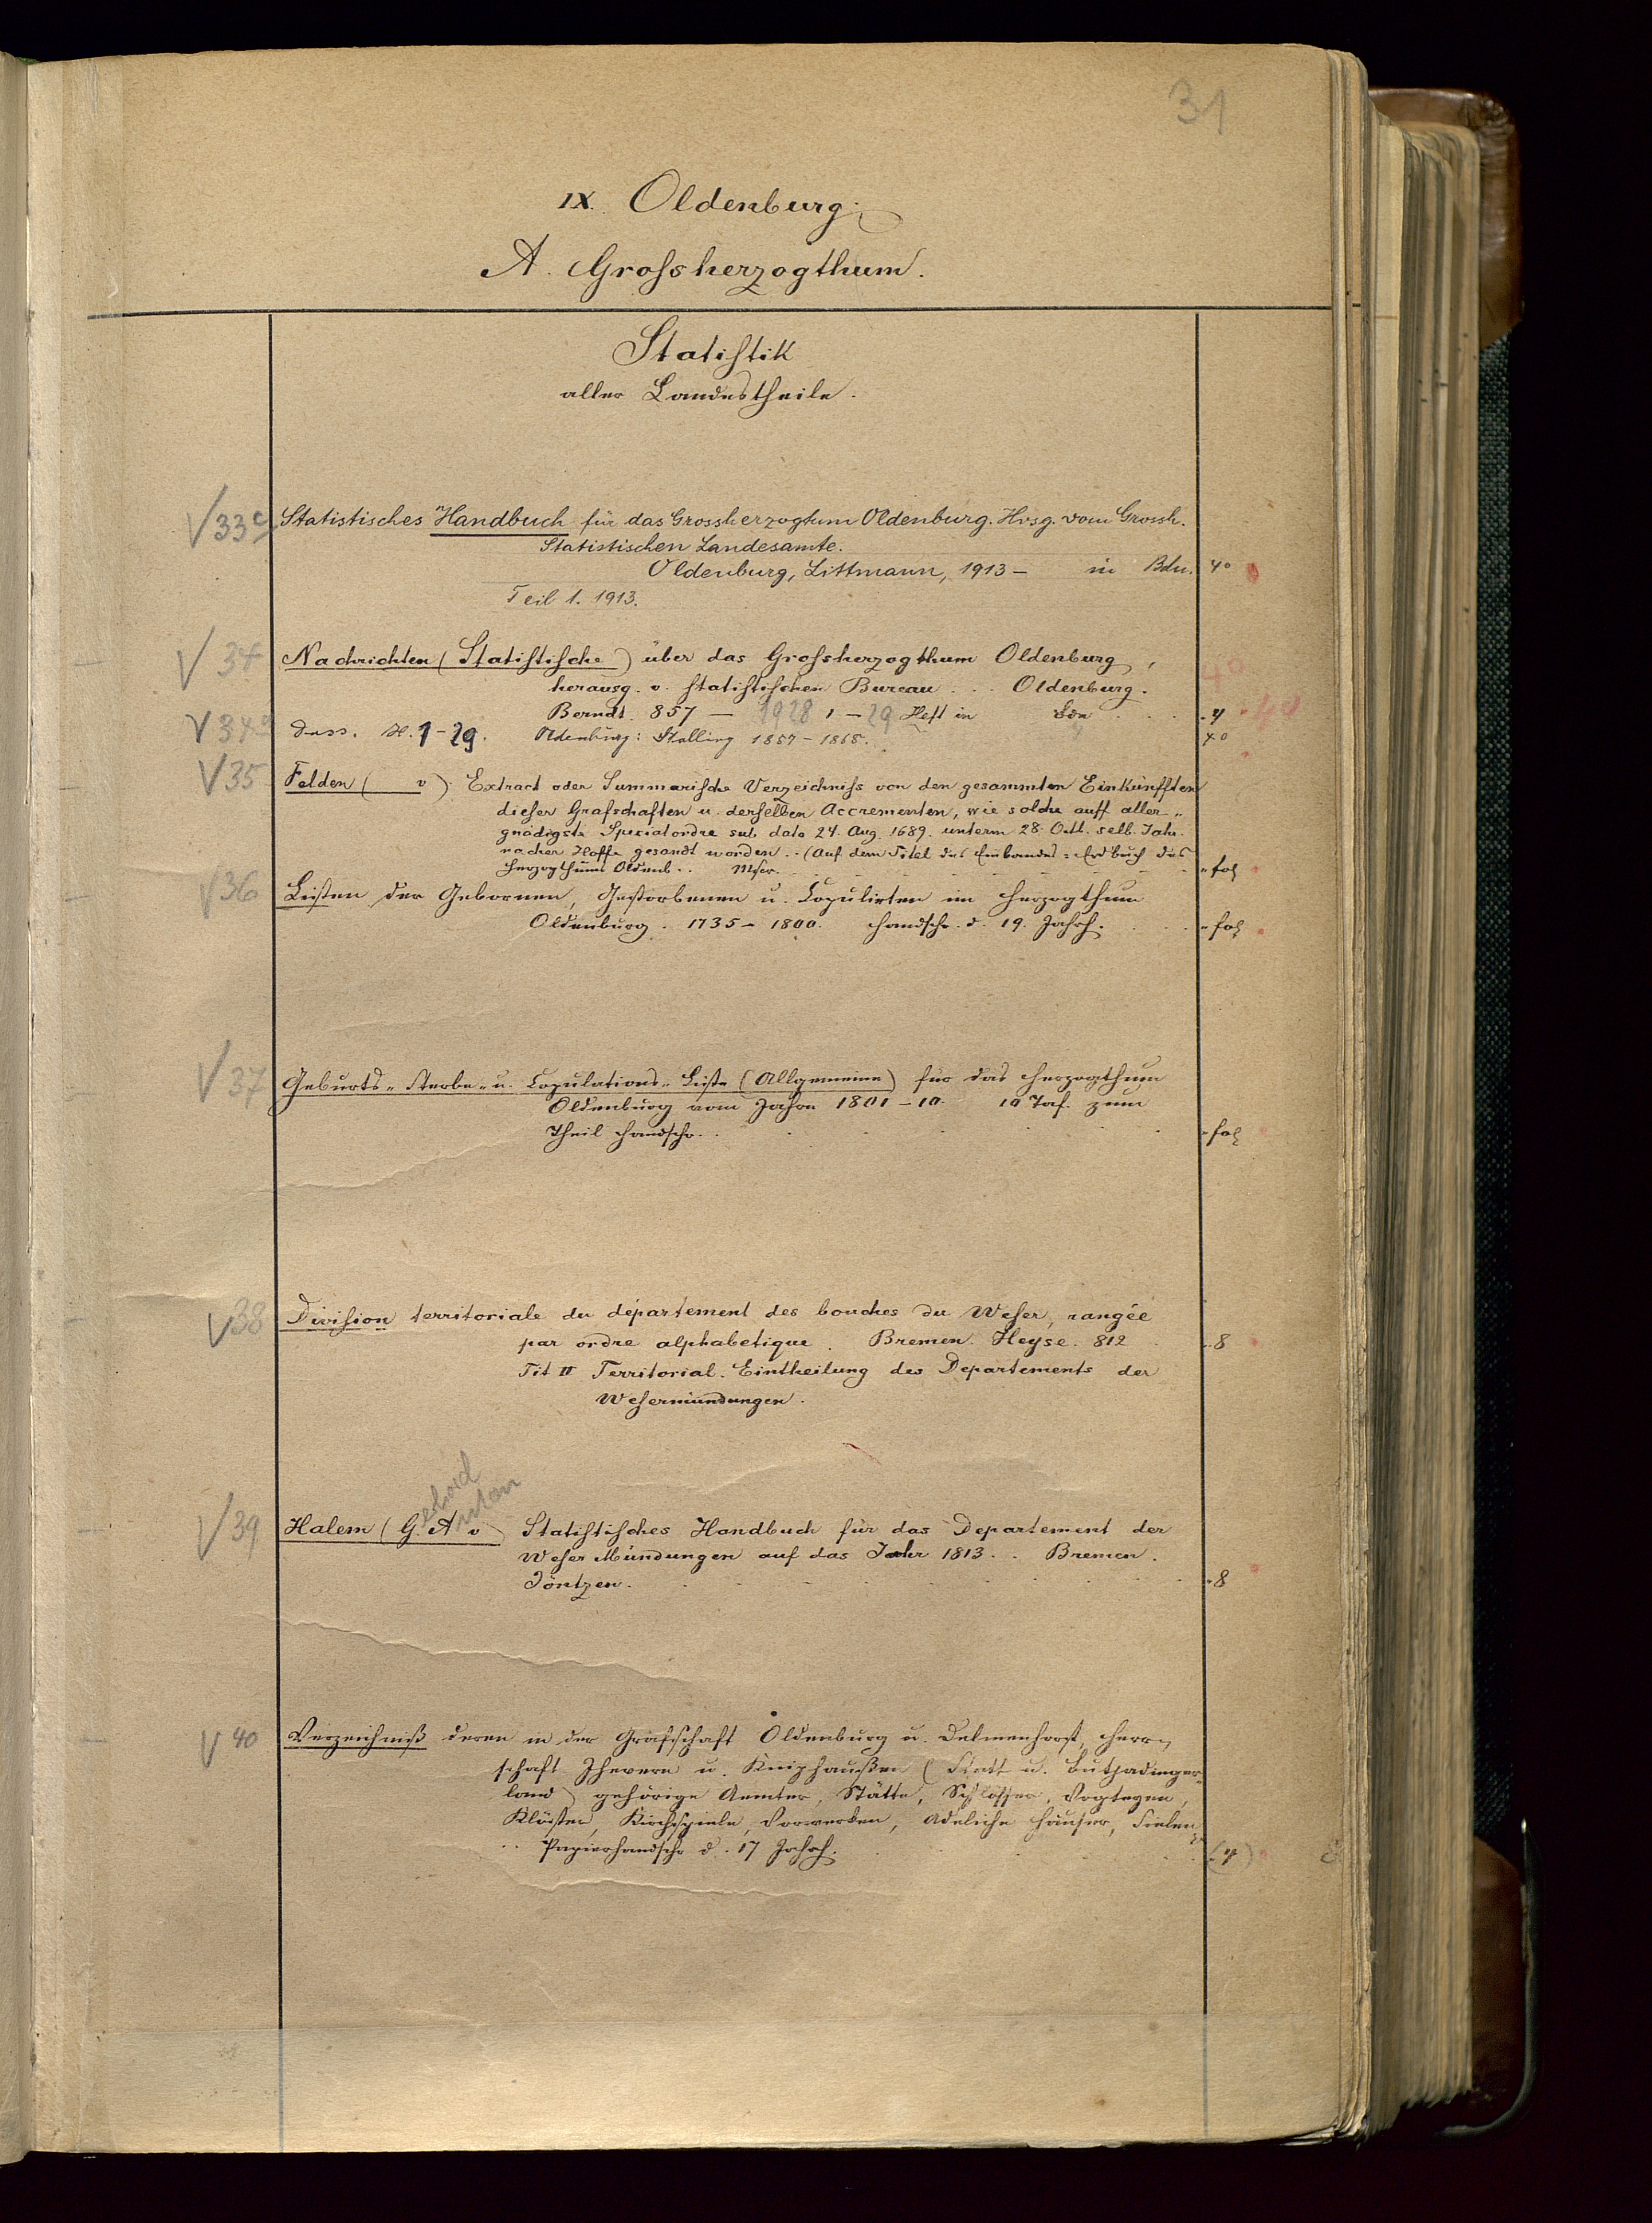 31
IX. Oldenburg.
A. Grossherzogthum.
Statistik
aller Landestheile.
V 33c Statistisches Handbuch für das Grossherzogtum Oldenburg. Hrsg. vom Grossh.
Statistischen Landesamte.
Oldenburg, Littmann, 1913 – in Bdn. 4°
Teil 1. 1913.
V 34 Nachrichten (Statistische) über das Grossherzogthum Oldenburg, 4°
herausg. v. statistischen Bureau . . . Oldenburg.
Berndt. 857 — 1928 1 – 29 Heft in Bdn . . . . 4 4°
V 34a Dass. H. 1–29. Oldenburg: Stalling 1857–1868. 4°
V 35 Felden ( v) Extract oder Summarische Verzeichniss von den gesammten Einkünfften
dieser Grafschaften u. derselben Accrementen, wie solche auff aller-
gnädigste Specialordre sub dato 24. Aug. 1689. unterm 28. Octt. selb. Jahr.
nacher Hoffe gesandt worden . . (Auf dem Titel des Einbandes: Erdbuch des
Herzogthums Oldenb. . Mscr. fol
V 36 Listen der Gebornen, Gestorbenen u. Copulirten im Herzogthum
Oldenburg. 1735 – 1800. Handschr. d. 19. Jahrh. . . . fol
V 37 Geburts- Sterbe- u. Copulations-Liste (Allgemeine) für das Herzogthum
Oldenburg vom Jahre 1801 – 10. 10 Taf. zum
Theil Handschr. . . fol
V 38 Division territoriale du département des bouches du Weser, rangée
par ordre alphabetique. Bremen. Heyse. 812 . . 8
Tit II Territorial-Eintheilung des Departements der
Wesermündungen.
Gerhard
Anton
V 39 Halem (G. A v) Statistisches Handbuch für das Departement der
Weser Mündungen auf das Jahr 1813. . . Bremen.
Jöntzen. . . 8
V 40 Verzeichniß deren in der Grafschaft Oldenburg u. Delmenhorst, Herr-
schaft Jhevern u. Kniphaußen (Statt u. Butjadinger-
land) gehörige Aemter, Stätte, Schlösser, Vogteyen,
Klöster, Kirchspiele, Vorwerken, Adeliche Häuser, Sielen
. . Papierhandschr d. 17 Jahrh. . . (4)